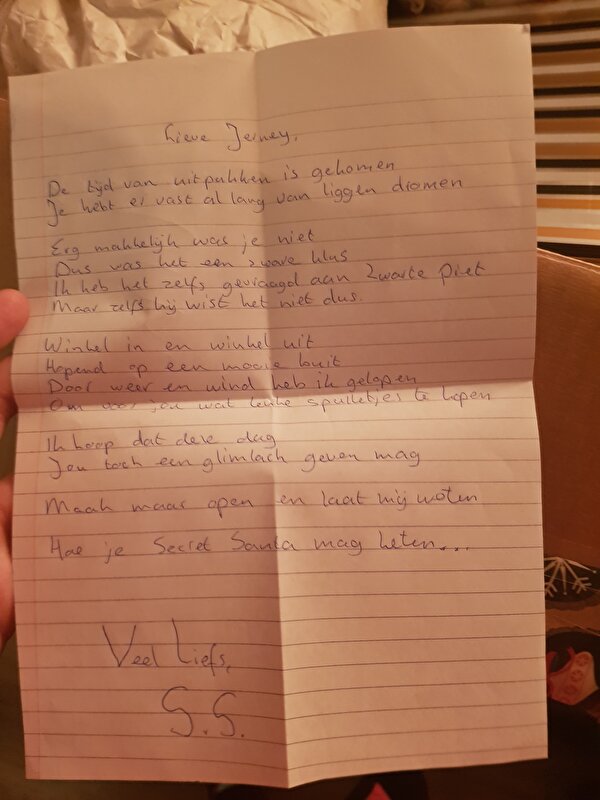 Lieve Jerney,
De tijd van uitpakken is gekomen
Je hebt er vast al lang van liggen dromen
Erg makkelijk was je niet
Dus was het een zware klus
Ik heb het zelfs gevraagd aan Zwarte Piet
Maar zelfs hij wist het niet dus.
Winkel in en winkel uit
Hopend op een mooie buit
Door weer en wind heb ik gelopen
Om voor jou wat leuke spulletjes te kopen
Ik hoop dat deze dag
Jou toch een glimlach geven mag
Maak maar open en laat mij weten
Hoe je Secret Santa mag heten...
Veel Liefs,
S.S.